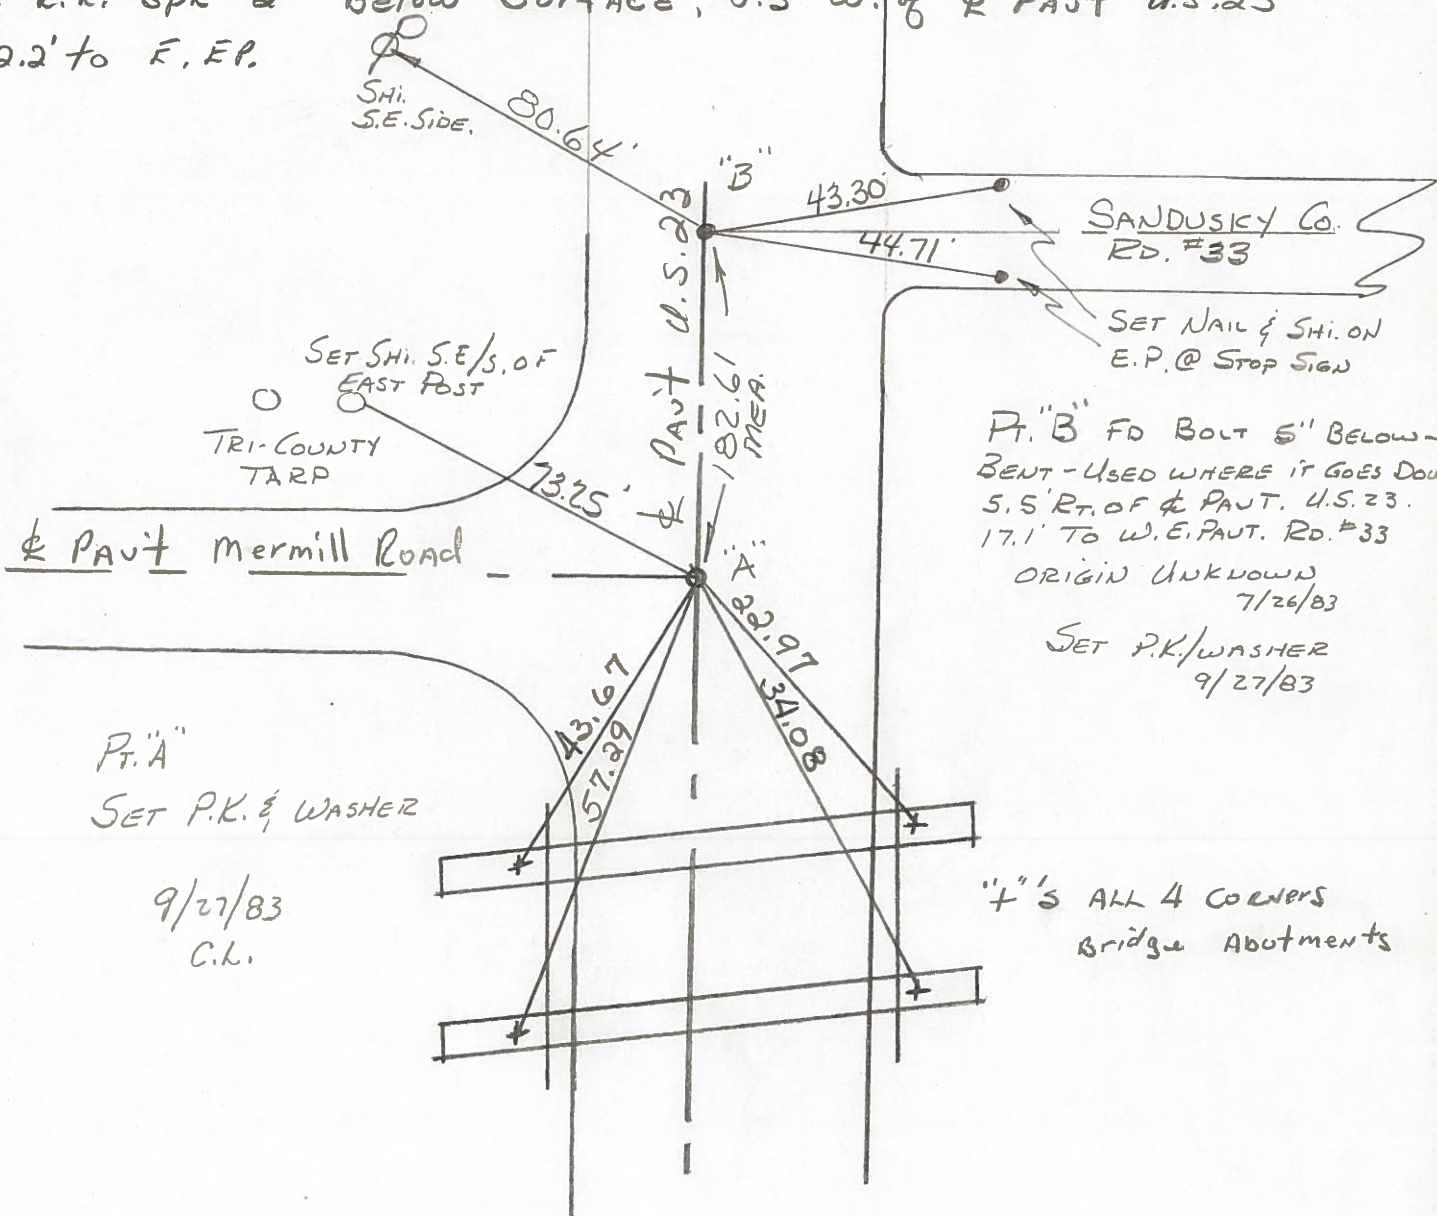 R.R. Spk 2" Below Surface, 0.5' W. of ℄ Pav't U.S.23
2.2' to E. EP.
SHI.
S.E. SIDE.
80.64'
"B"
43.30'
44.71'
SANDUSKY CO.
RD. #33
SET NAIL & SHI. ON
E.P. @ STOP SIGN
℄ Pav't U.S.23
182.61
MEA.
SET SHI. S.E/S. OF
EAST POST
TRI-COUNTY
TARP
73.25'
PT. "B" FD BOLT 5" BELOW-
BENT - USED WHERE IT GOES DOW
5.5' RT. OF ℄ PAVT. U.S.23.
17.1' TO W. E. PAVT. RD. #33
ORIGIN UNKNOWN
7/26/83
SET P.K./WASHER
9/27/83
℄ Pav't Mermill Road
"A"
22.97
34.08
43.67
57.29
PT. "A"
SET P.K. & WASHER
9/27/83
C.L.
"+"'s ALL 4 Corners
Bridge Abutments